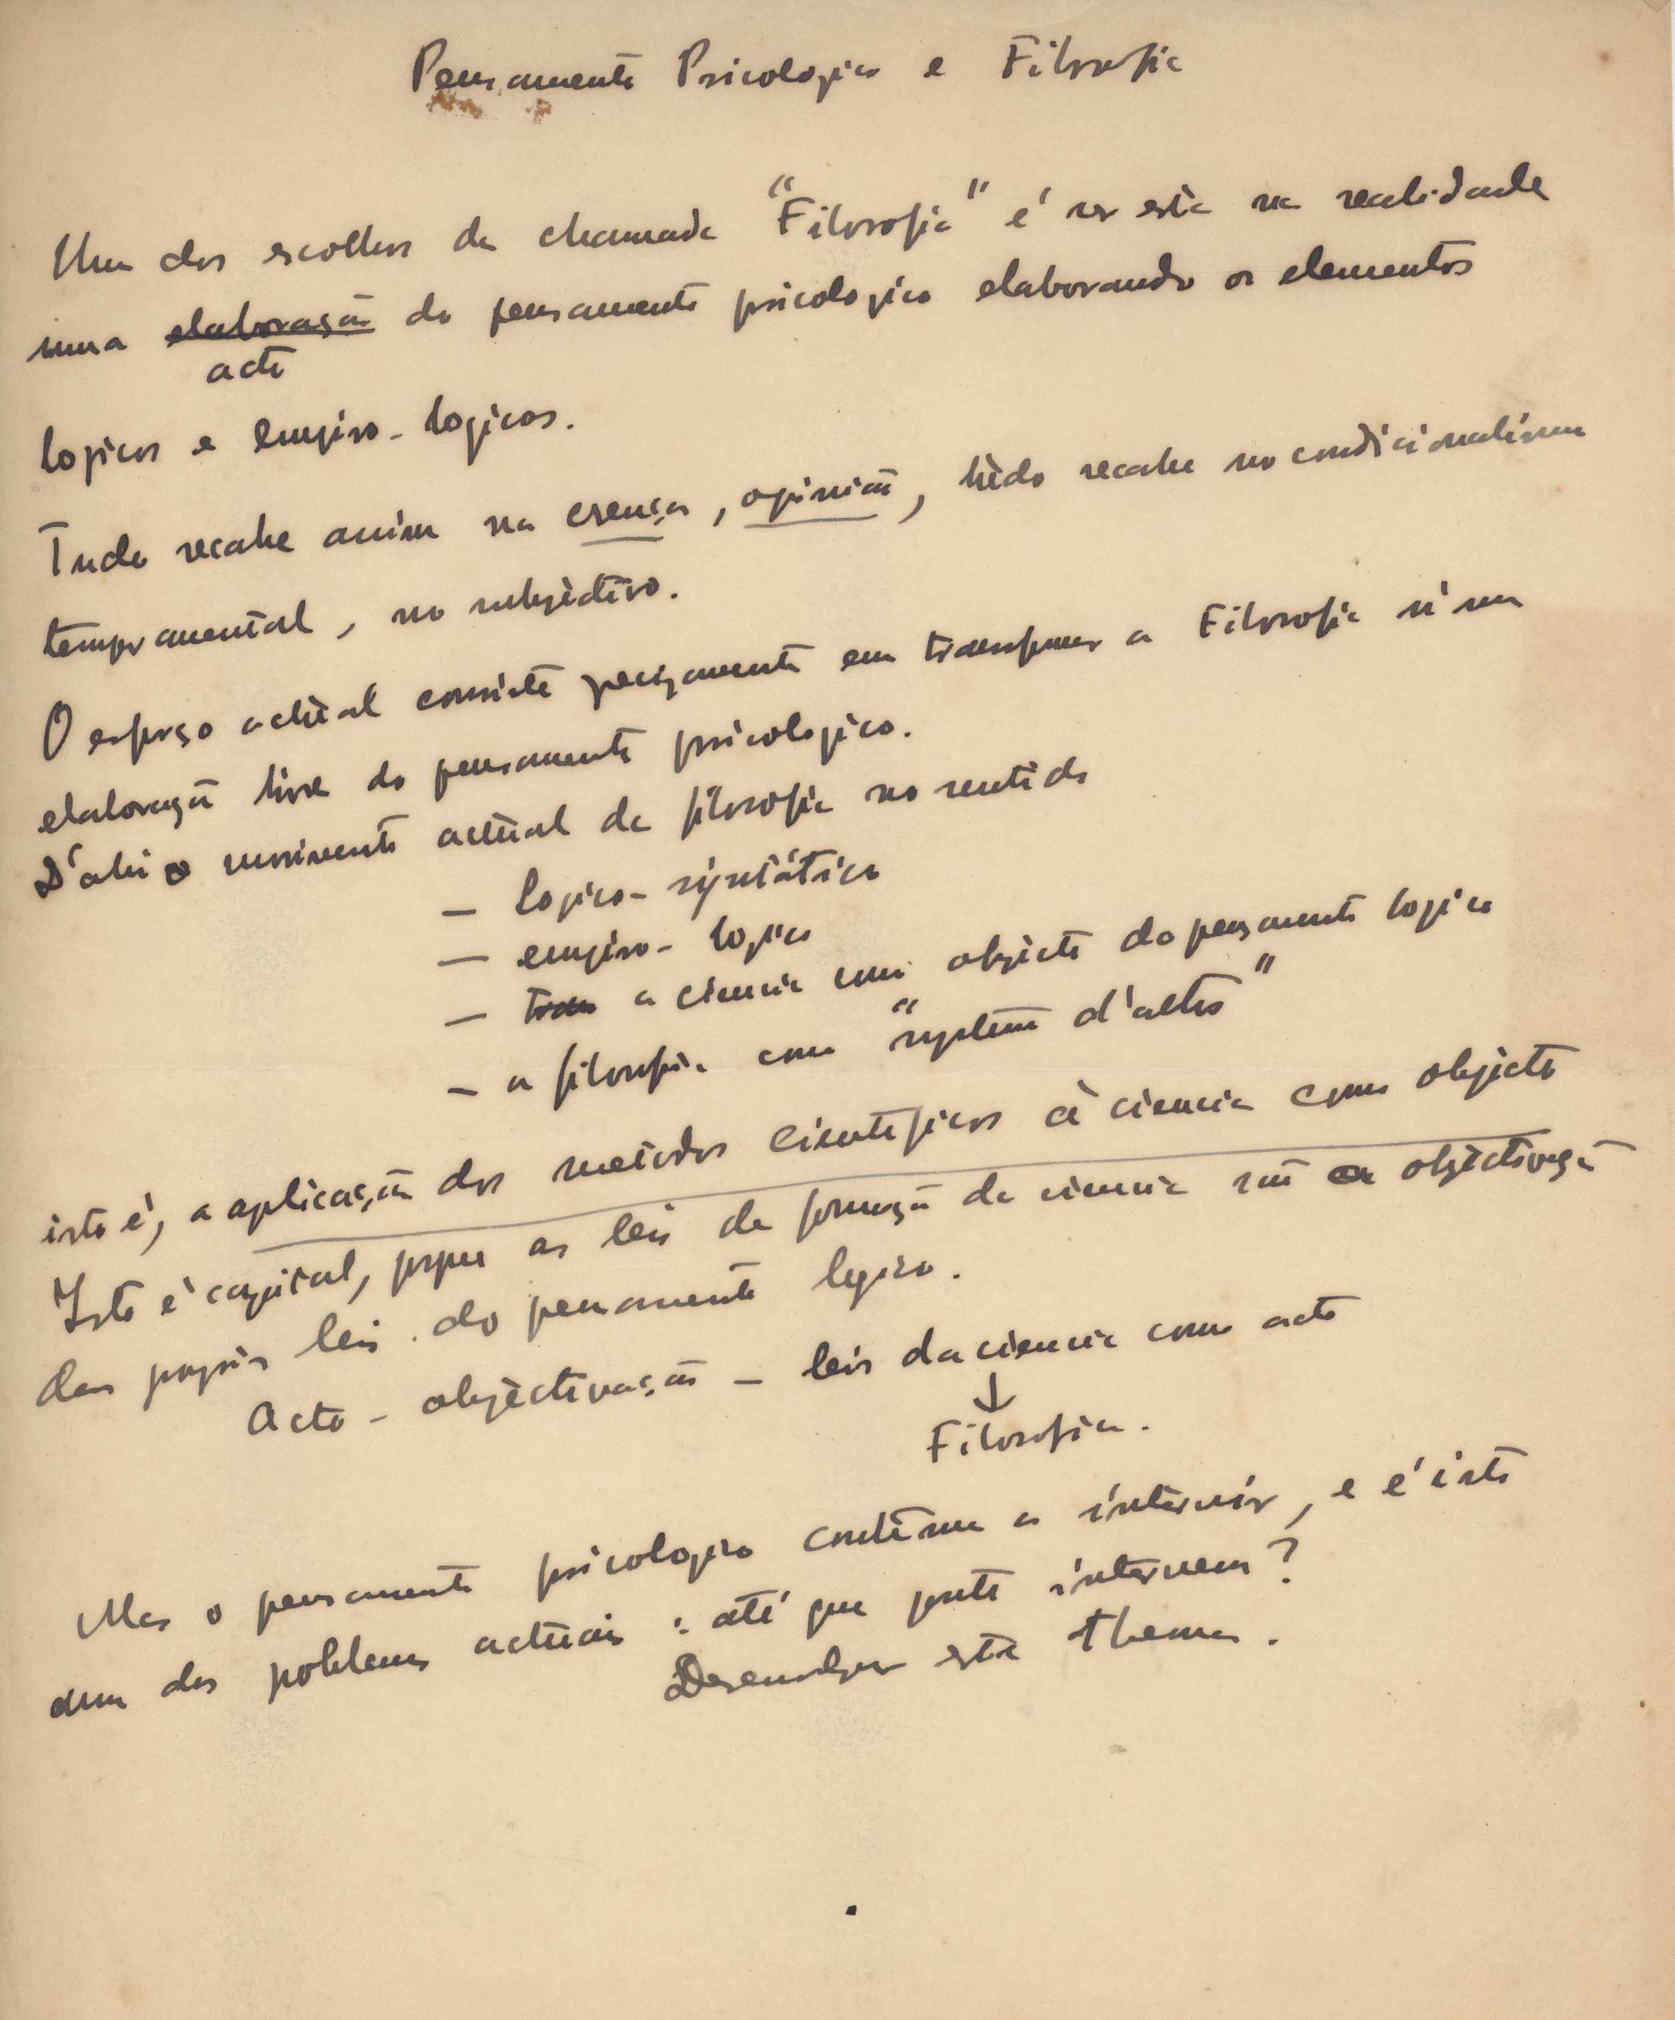 Pensamento Psicologico e Filosofia
Um dos escolhos da chamada "Filosofia" é ser esta na realidade
uma elaboração do pensamento psicologico elaborando os elementos
acto
logicos e empiro-logicos.
Tudo recahe assim na crença, opinião, tudo recahe no condicionalismo
tempramental, no subjèctivo.
O esforço actual consiste precisamente em transformar a Filosofia n'uma
elaboração livre do pensamento psicologico.
D'ahi o movimento actual da filosofia no sentido
- logico-syntático
- empiro-logico
- a ciencia como objecto do pensamento logico
- a filosofia como "system d'actos"
isto é, a aplicação dos metodos cientificos à ciencia como objecto
Isto é capital, porque as leis da formação da ciencia são a objèctivação
das proprias leis do pensamento logico.
Acto - objèctivação - leis da ciencia como acto
↓
Filosofia.
Mas o pensamento psicologico continua a intervir, e é isto
um dos problemas actuais : até que ponto intervem?
Desenvolver este thema.